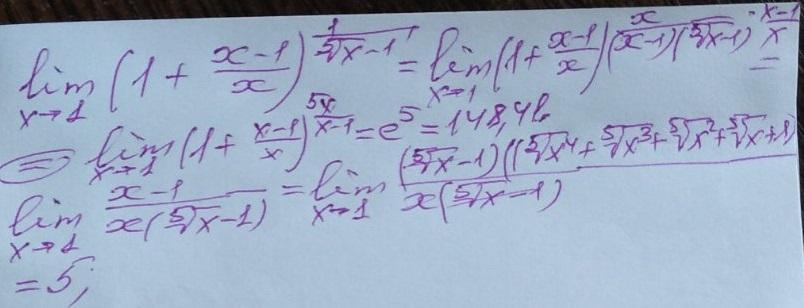 lim x→1 (1 + (x-1)/x)^(1/(⁵√x-1)) = lim x→1 (1 + (x-1)/x)^(x/((x-1)(⁵√x-1)) · (x-1)/x) =
= lim x→1 (1 + (x-1)/x)^(5x/(x-1)) = e⁵ = 148,41.
lim x→1 (x-1)/(x(⁵√x-1)) = lim x→1 ((⁵√x-1)((⁵√x⁴ + ⁵√x³ + ⁵√x² + ⁵√x + 1))/(x(⁵√x-1))
= 5;